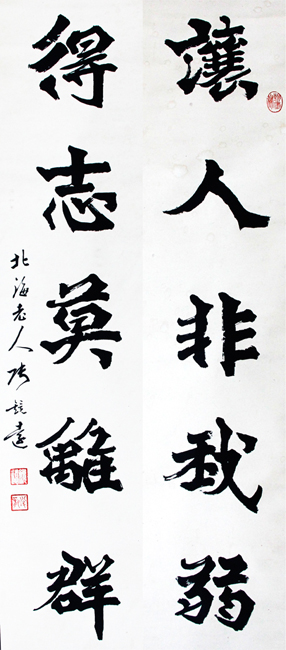 讓人非我弱
得志莫離群
北海老人張遠